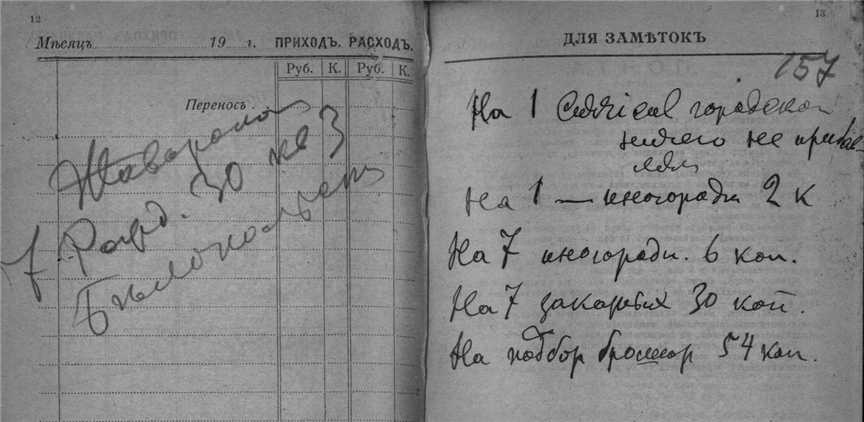 12
Мѣсяцъ 19 г. ПРИХОДЪ. РАСХОДЪ.
Руб. К. Руб. К.
Переносъ
30 кв 3
7
13
ДЛЯ ЗАМѢТОКЪ
157
На 1 городской
ничего не прибав-
ляли
На 1 — иногородн 2 к
На 7 иногородн. 6 коп.
На 7 закрытых 30 коп.
На подбор брошюр 54 коп.